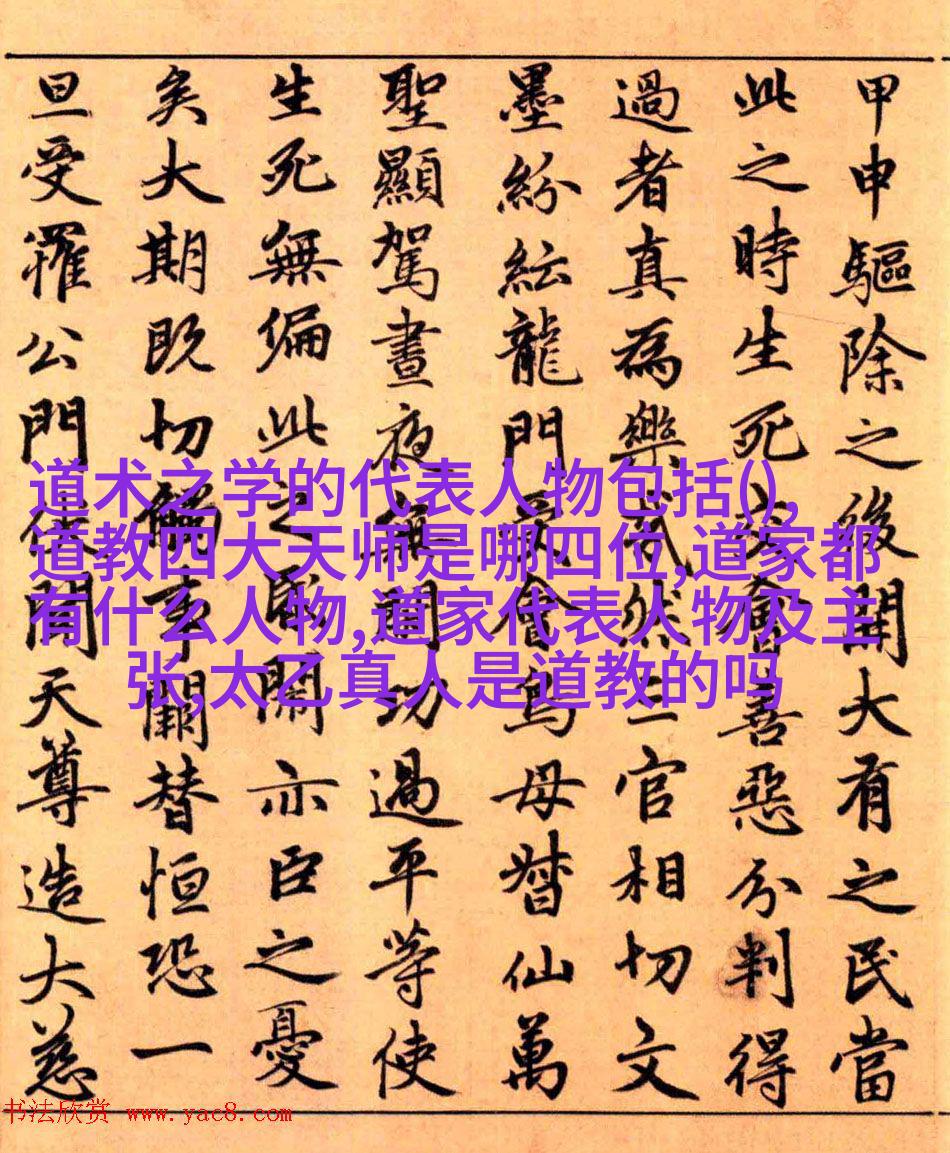 甲申驅除之後開大有之民當
此之時生死善惡分判得
過者真為樂然三官相切文
墨紛紜龍門會鳥母督仙萬
聖顯駕晝夜無間功過平等使
生死無偏此之亦臣之憂
矣大期既切解替恒恐一
旦受罹公門聞天尊造大慈
道术之学的代表人物包括(),
道教四大天师是哪四位,道家都
有什么人物,道家代表人物及主
张,太乙真人是道教的吗
书法欣赏 www.yac8.com